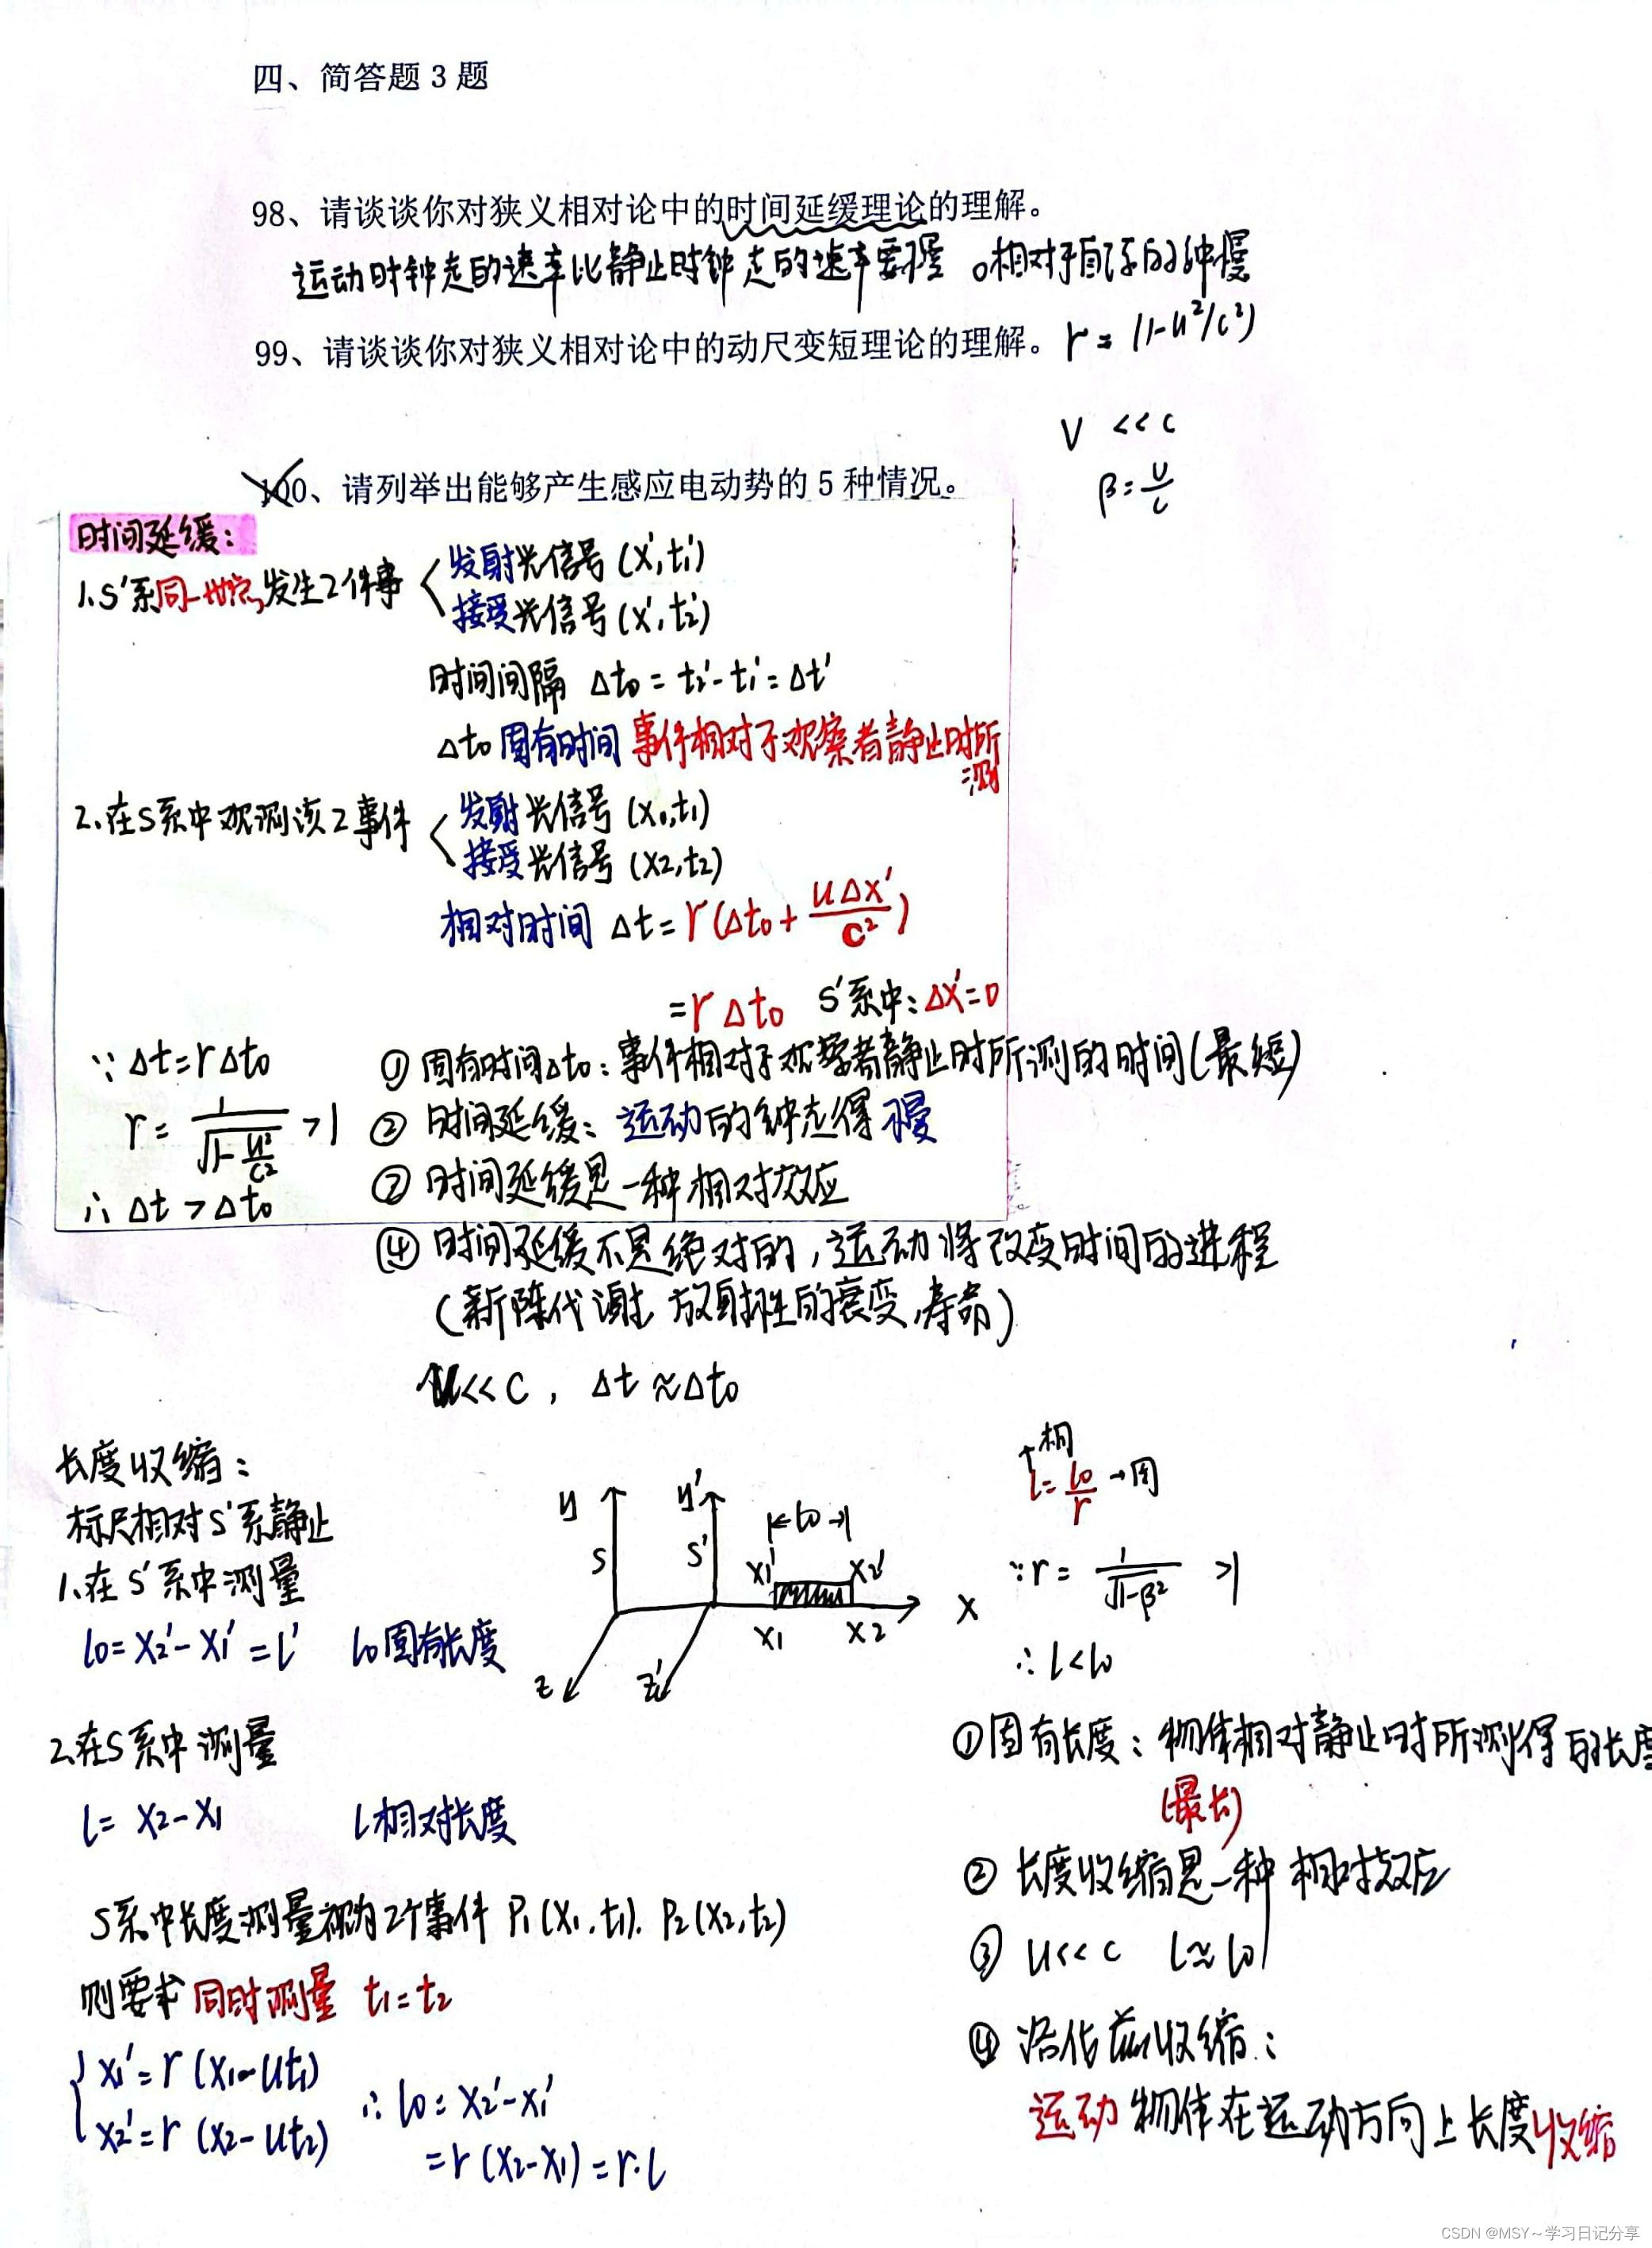 四、简答题 3 题
98、请谈谈你对狭义相对论中的时间延缓理论的理解。
运动时钟走的速率比静止时钟走的速率要慢 。相对于自己的钟慢
99、请谈谈你对狭义相对论中的动尺变短理论的理解。 r = (1-u²/c²)
V << c
β = u/c
100、请列举出能够产生感应电动势的 5 种情况。
时间延缓:
1、S'系同一地点发生2件事
发射光信号 (x', t1')
接受光信号 (x', t2')
时间间隔 Δt0 = t2' - t1' = Δt'
Δt0 固有时间 事件相对于观察者静止时所测
2、在S系中观测该2事件
发射光信号 (x1, t1)
接受光信号 (x2, t2)
相对时间 Δt = r(Δt0 + uΔx'/c²)
= rΔt0 S'系中: Δx'=0
∵ Δt = rΔt0
r = 1/√(1-u²/c²) > 1
∴ Δt > Δt0
① 固有时间Δt0: 事件相对于观察者静止时所测的时间(最短)
② 时间延缓: 运动的钟走得慢
③ 时间延缓是一种相对效应
④ 时间延缓不是绝对的, 运动将改变时间的进程
(新陈代谢、放射性的衰变、寿命)
u << c , Δt ≈ Δt0
长度收缩:
标尺相对S'系静止
1、在S'系中测量
l0 = x2' - x1' = l' l0 固有长度
2、在S系中测量
l = x2 - x1 l 相对长度
S系中长度测量视为2个事件 P1(x1, t1). P2(x2, t2)
则要求同时测量 t1 = t2
x1' = r(x1 - ut1)
x2' = r(x2 - ut2)
∴ l0 = x2' - x1'
= r(x2 - x1) = r·l
y y' |←l0→|
S S' x1' x2'
x1 x2 x
z z'
相
l = l0/r → 固
∵ r = 1/√(1-β²) >1
∴ l < l0
① 固有长度: 物体相对静止时所测得的长度
(最长)
② 长度收缩是一种相对效应
③ u << c l ≈ l0
④ 洛伦兹收缩:
运动物体在运动方向上长度收缩
CSDN @MSY~学习日记分享